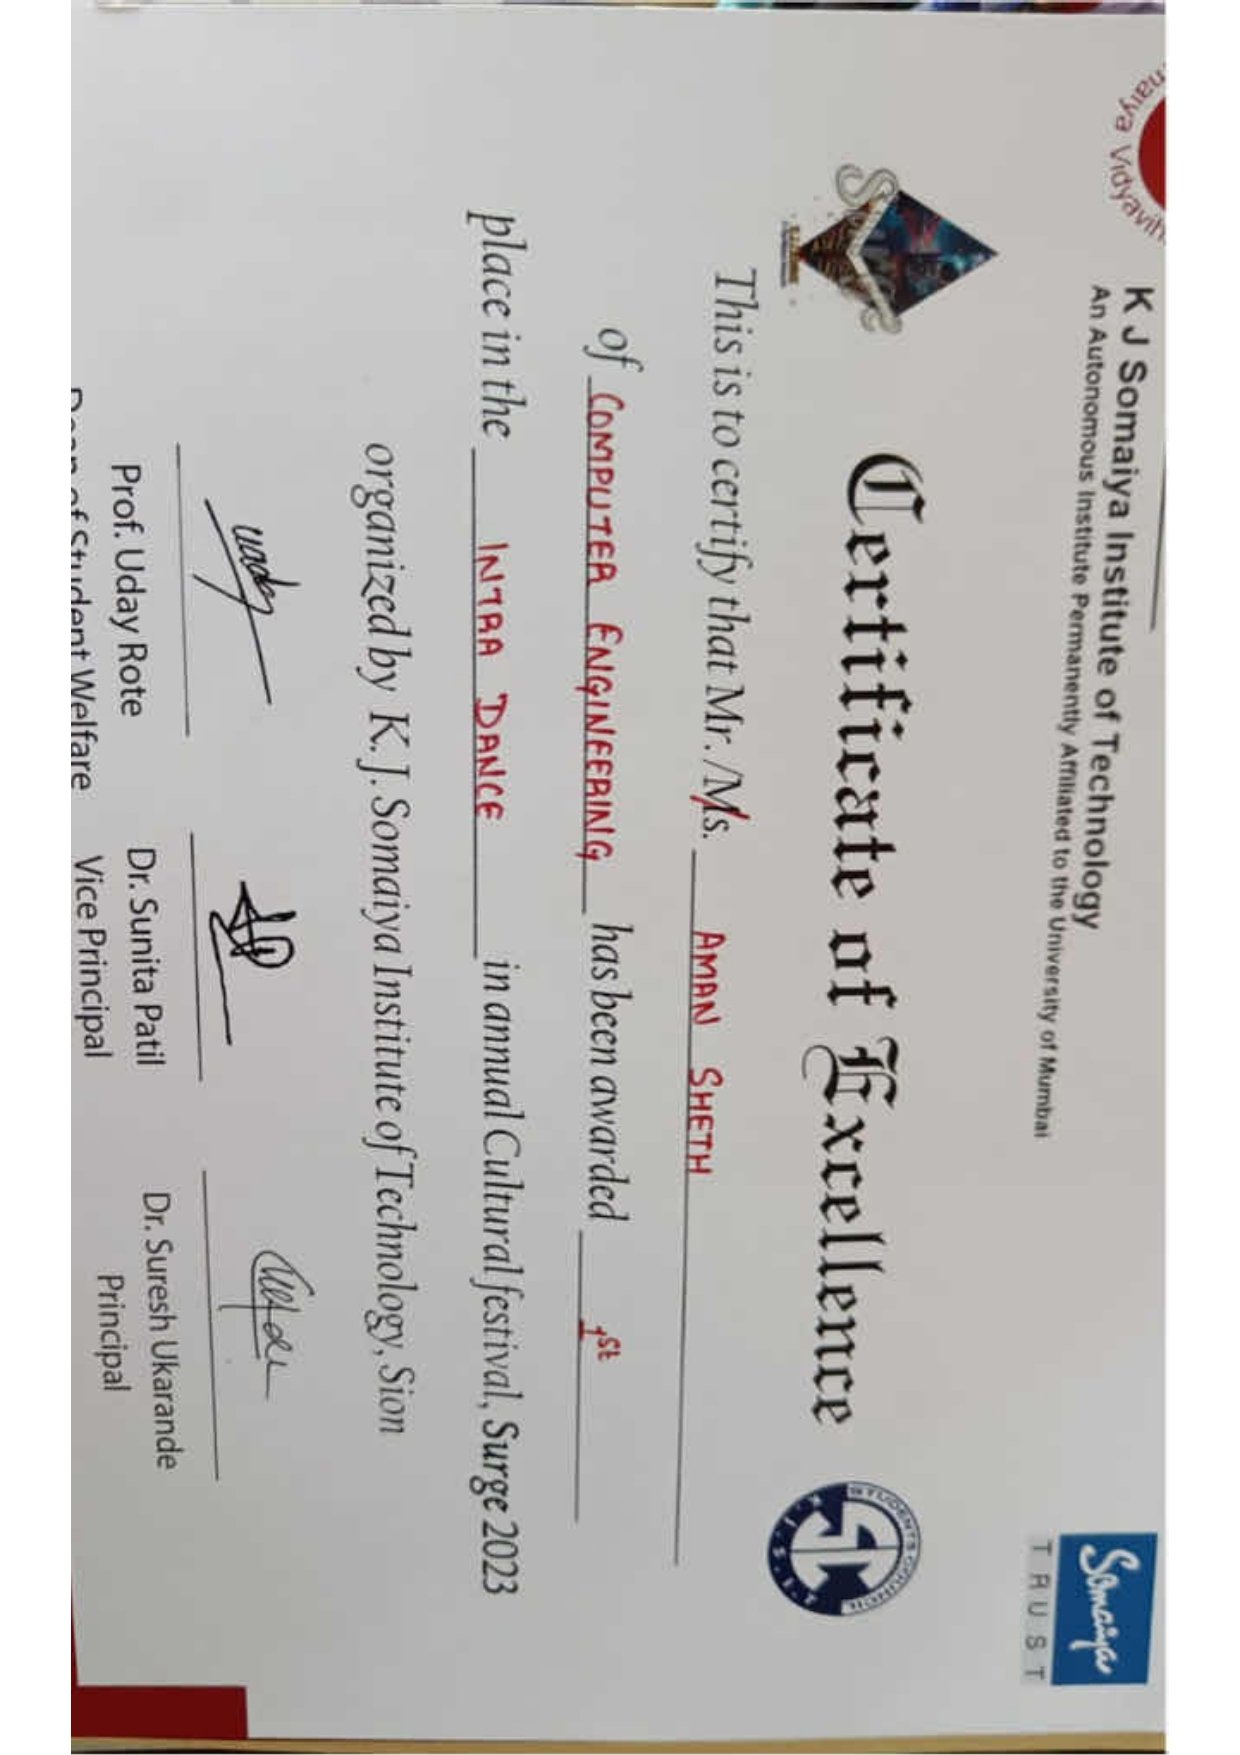 maiya Vidyavih
K J Somaiya Institute of Technology
An Autonomous Institute Permanently Affiliated to the University of Mumbai
Somaiya
TRUST
Certificate of Excellence
STUDENTS COUNCIL
K.J.S.I.T
This is to certify that Mr./Ms. AMAN SHETH
of COMPUTER ENGINEERING has been awarded 1st
place in the INTRA DANCE in annual Cultural festival, Surge 2023
organized by K. J. Somaiya Institute of Technology, Sion
Prof. Uday Rote
Dean of Student Welfare
Dr. Sunita Patil
Vice Principal
Dr. Suresh Ukarande
Principal